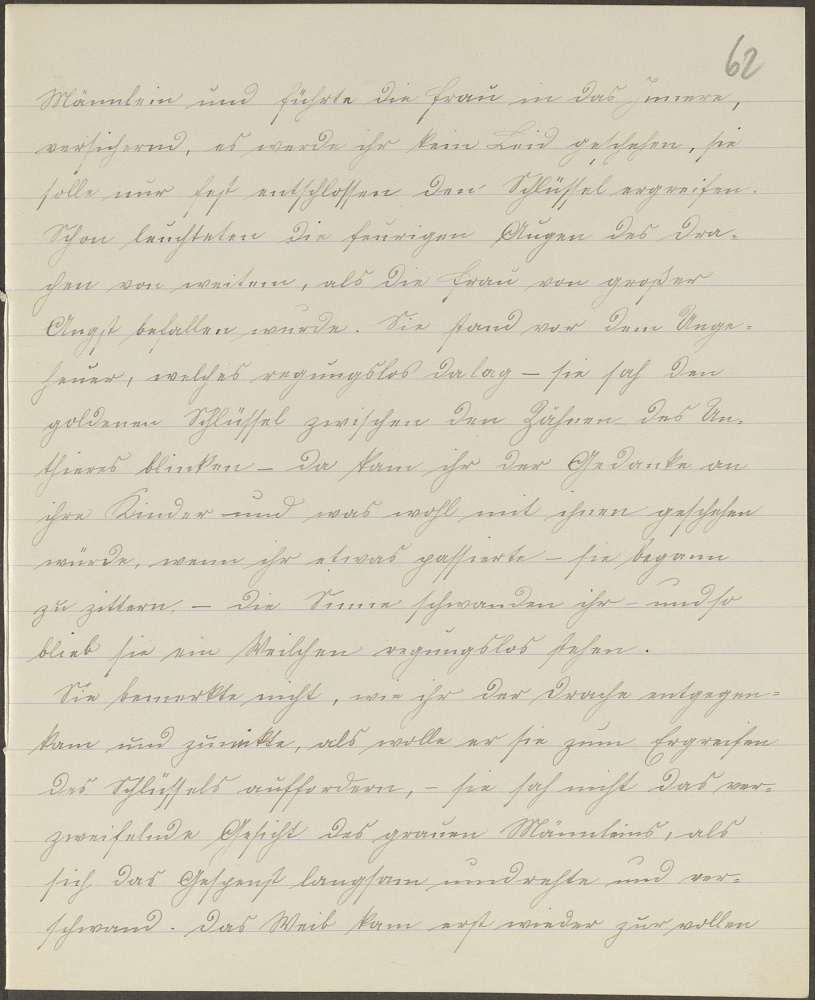 62
Männlein und führte die Frau in das Innere,
versichernd, es werde ihr kein Leid geschehen, sie
solle nur fest entschlossen den Schlüssel ergreifen.
Schon leuchteten die feurigen Augen des Dra-
chen von weitem, als die Frau von großer
Angst befallen wurde. Sie stand vor dem Unge-
heuer, welches regungslos dalag – sie sah den
goldenen Schlüssel zwischen den Zähnen des Un-
thieres blinken – da kam ihr der Gedanke an
ihre Kinder und was wohl mit ihnen geschehen
würde, wenn ihr etwas passierte – sie begann
zu zittern, – die Sinne schwanden ihr – und so
blieb sie ein Weilchen regungslos stehen.
Sie bemerkte nicht, wie ihr der Drache entgegen-
kam und zunickte, als wolle er sie zum Ergreifen
des Schlüssels auffordern, – sie sah nicht das ver-
zweifelnde Gesicht des grauen Männleins, als
sich das Gespenst langsam umdrehte und ver-
schwand. Das Weib kam erst wieder zur vollen